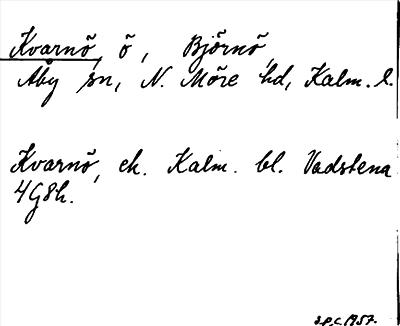 Kvarnö, ö, Björnö,
Åby sn, N. Möre hd, Kalm. l.
Kvarnö, ek. Kalm. bl. Vadstena
4G8h.
S.P.C. 1957.